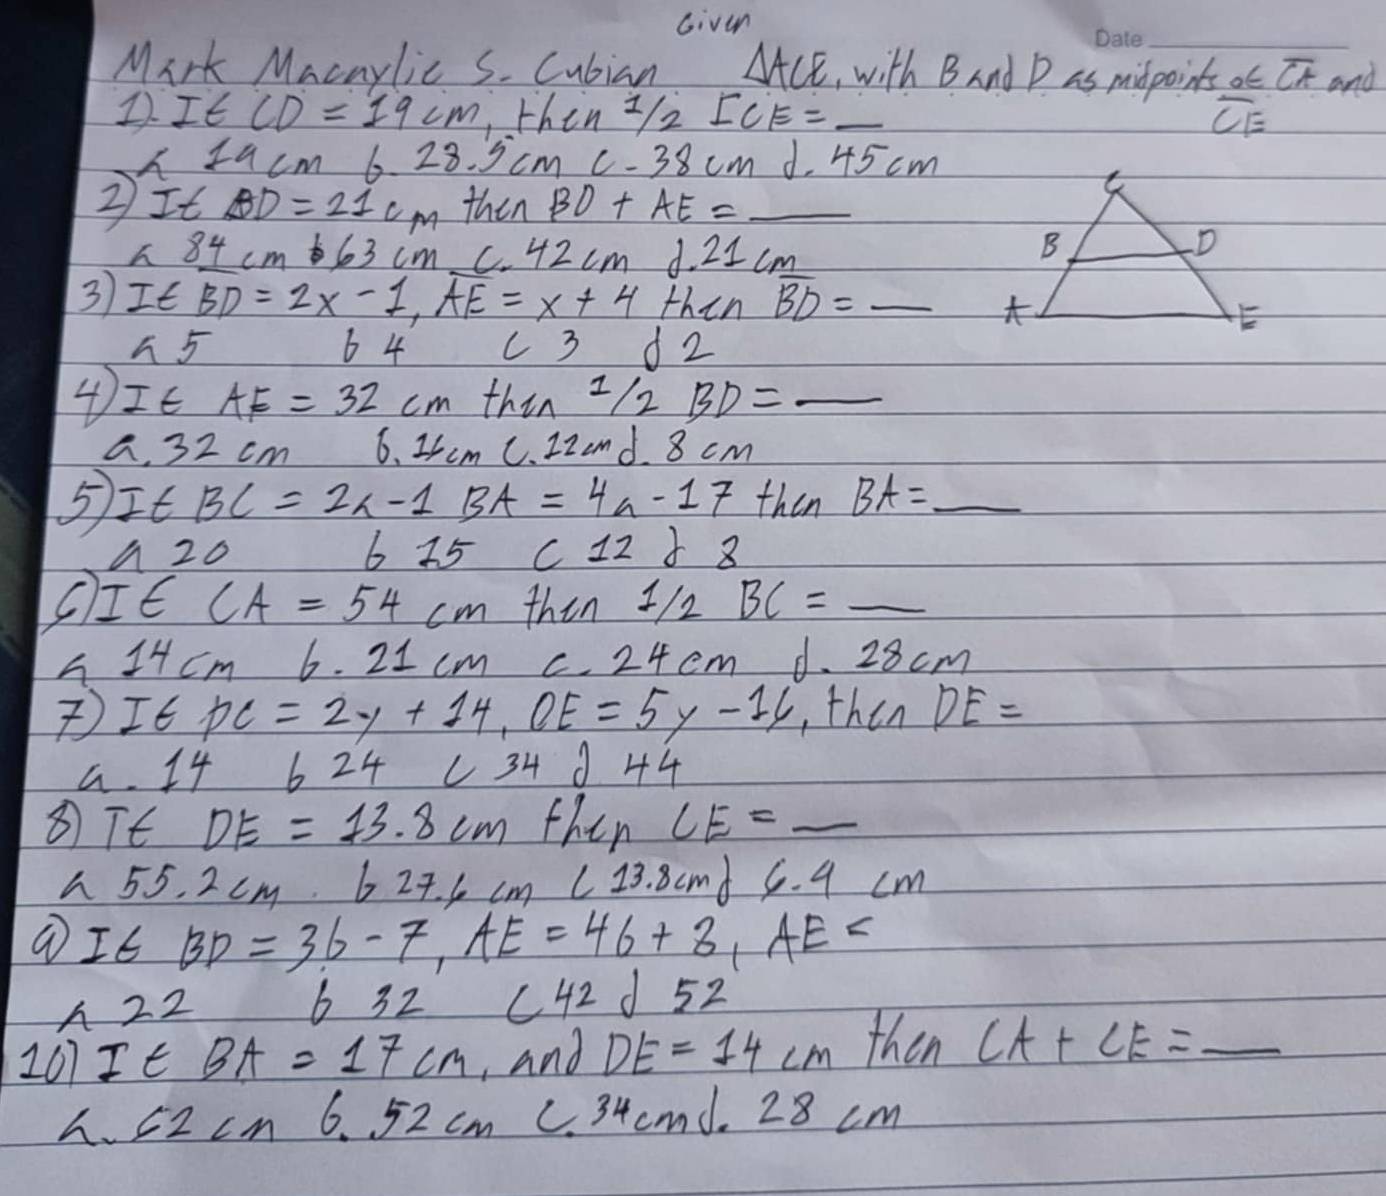 Given
Date
Mark Macnylie S. Cubian ΔACE, with B and D as midpoints of CA and
CE
1) If CD = 19 cm, then 1/2 ICE = __
a 19 cm b. 28.5 cm c. 38 cm d. 45 cm
2) If BD = 21 cm then BD + AE = __
a 84 cm b 63 cm c. 42 cm d. 21 cm
3) If BD = 2x - 1, AE = x + 4 then BD = __
a 5 b 4 c 3 d 2
4) If AE = 32 cm then 1/2 BD = __
a. 32 cm b. 16 cm c. 12 cm d. 8 cm
5) If BC = 2a - 1 BA = 4a - 17 then BA = __
a 20 b 15 c 12 d 8
6) If CA = 54 cm then 1/2 BC = __
a 14 cm b. 21 cm c. 24 cm d. 28 cm
7) If DC = 2y + 14, DE = 5y - 16, then DE =
a. 14 b 24 c 34 d 44
8) If DE = 13.8 cm then CE = __
a 55.2 cm. b 27.6 cm c 13.8 cm d 6.9 cm
9) If BD = 3b - 7, AE = 4b + 8, AE <
a 22 b 32 c 42 d 52
10) If BA = 17 cm, and DE = 14 cm then CA + CE = __
a. 62 cm b. 52 cm c. 34 cm d. 28 cm
C
B D
A E